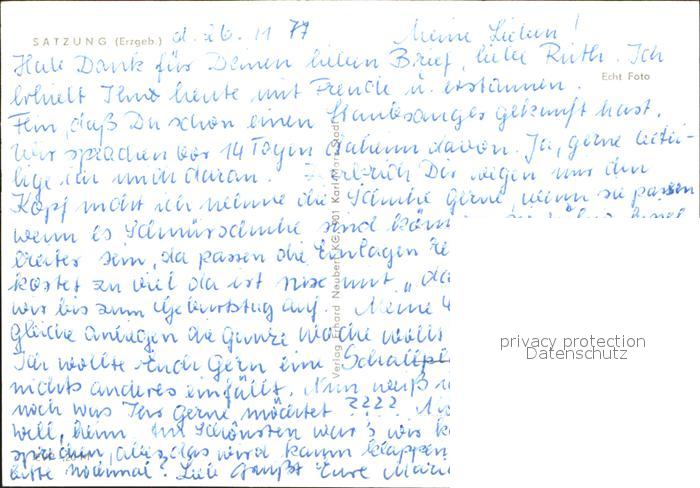 SATZUNG (Erzgeb.) d. 26. 11 77 Meine Lieben!
Hab Dank für Deinen lieben Brief, liebe Ruth. Ich
Echt Foto
erhielt Ihn heute mit Freude u. erstaunen.
Fein, daß Du schon einen Staubsauger gekauft hast.
Wir sprachen vor 14 Tagen daheim davon. Ja, gerne betei-
lige ich mich daran. Dir wegen uns den
Kopf nicht ich nehme die Schuhe gerne, wenn sie passen
wenn es Schnürschuhe sind kön
breiter sein, da passen die Einlagen
kostet zu viel da ist nix mit „da
wir bis zum Geburtstag auf. Meine
gleiche anliegen die ganze Woche
Ich wollte Euch gern eine Schallpl
nichts anderes einfällt. Nun weiß
noch was Ihr gerne möchtet ????
will, beim Am Schönsten war's wir k
sprechen, aber das wird kaum klappen
bitte nochmal? Liebe Grüße Eure Marie
Verlag Erhard Neubert KG, 901 Karl-Marx-Stadt
privacy protection
Datenschutz